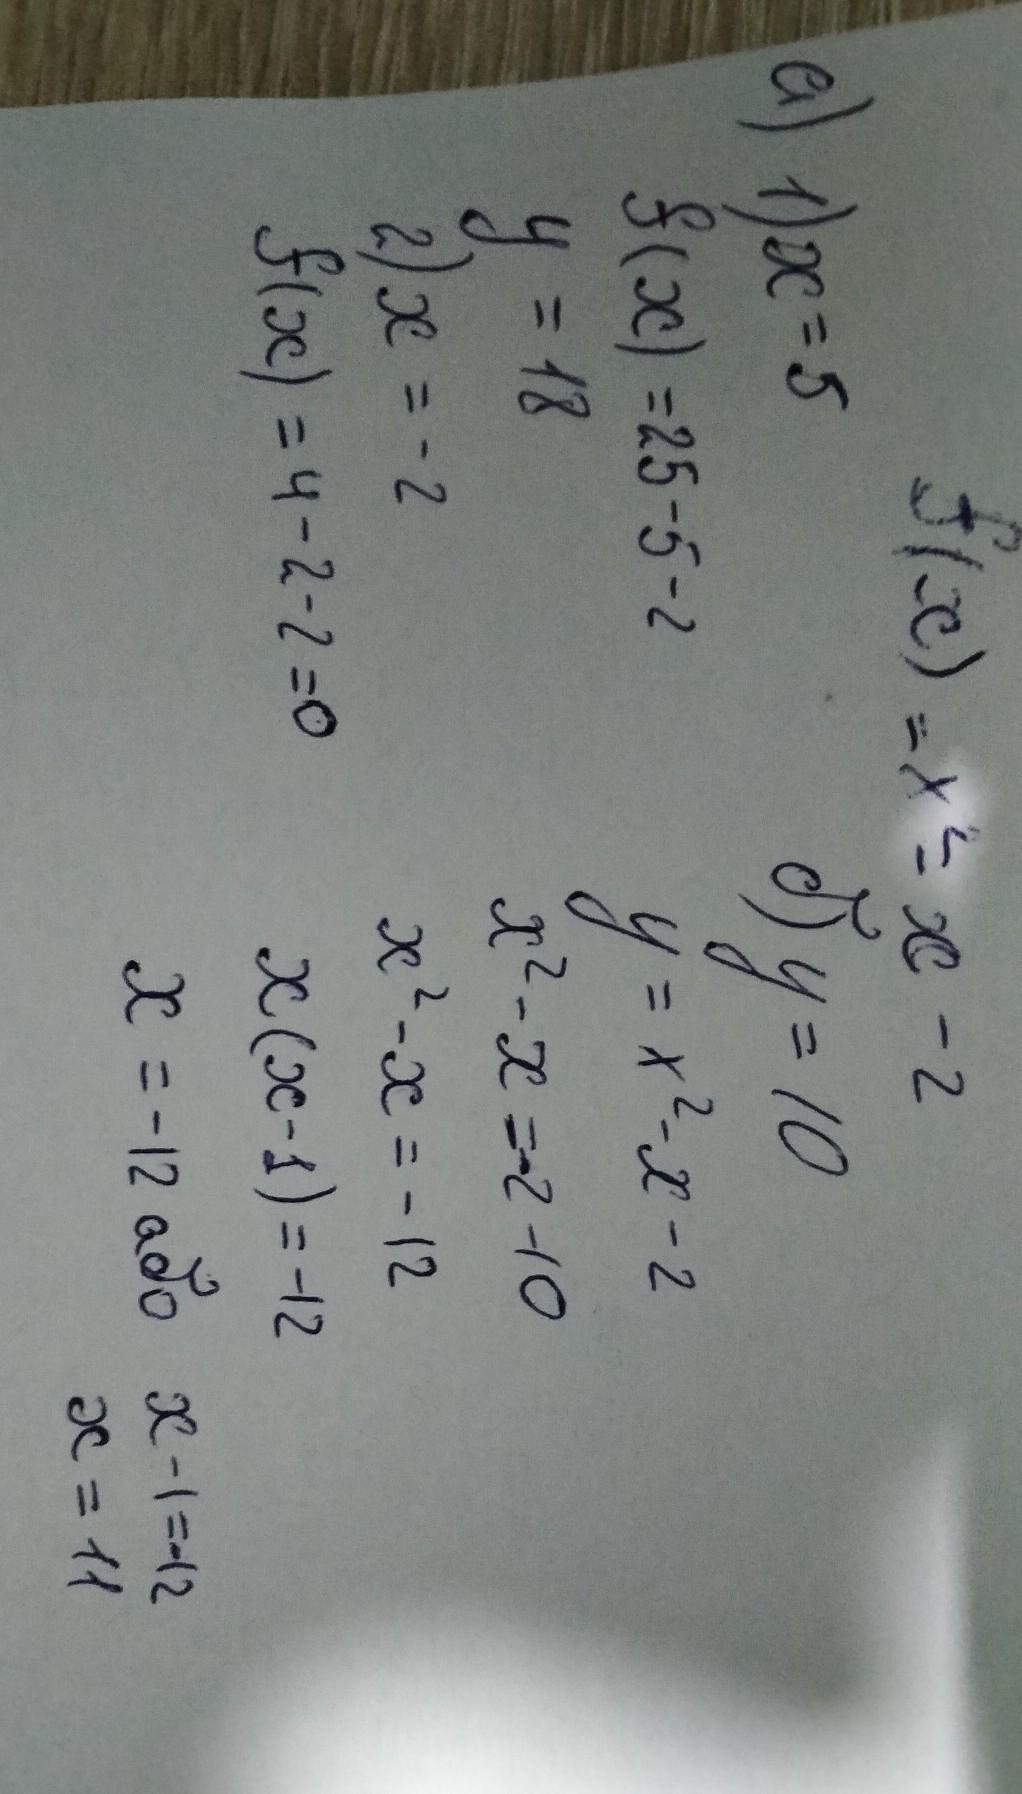 f(x) = x² - x - 2
а) 1) x = 5
f(x) = 25 - 5 - 2
y = 18
2) x = -2
f(x) = 4 - 2 - 2 = 0
б) y = 10
y = x² - x - 2
x² - x = -2 - 10
x² - x = -12
x(x - 1) = -12
x = -12 або x - 1 = -12
x = 11